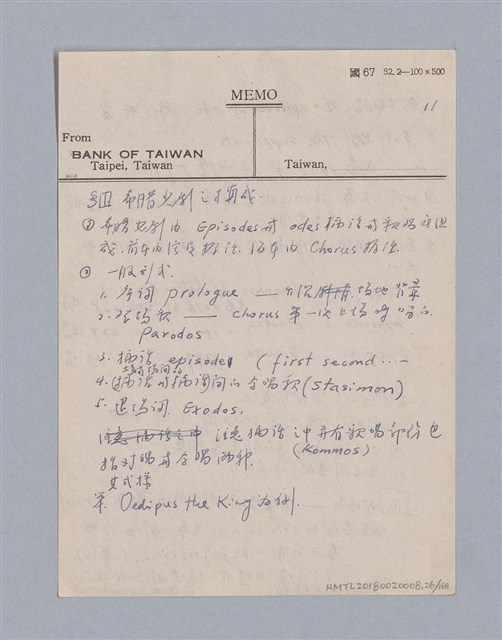 國 67 52.2—100×500
MEMO
11
From
BANK OF TAIWAN
Taipei, Taiwan
Taiwan,
希腊悲剧之構成
① 希腊悲剧由 Episodes或 odes插话或歌唱所组
成.前者由演員担任.后者由 Chorus担任.
② 一般形式
1. 序词 prologue — 場地背景
2. 進場歌 — Chorus 第一次上場時唱的
Parodos
3. 插话 episode (first second ....
4. 插话的合唱歌 (Stasimon)
5. 退場词 Exodos.
注意插话之中亦有歌唱部份包
括对唱或合唱两种. (Kommos)
其式樣
Oedipus the King 为例.
NMTL20180020008.26/168